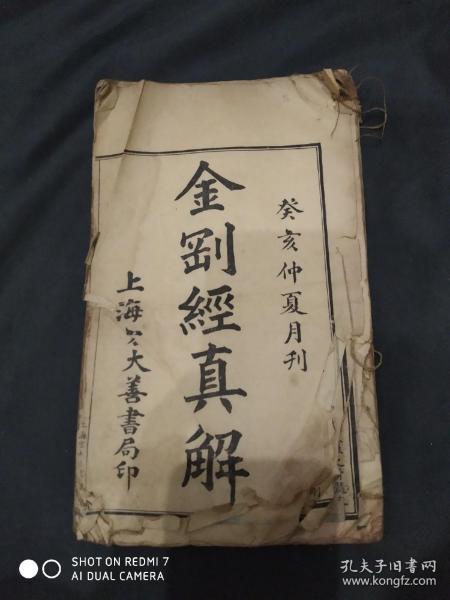 癸亥仲夏月刊
金剛經真解
上海大善書局印
SHOT ON REDMI 7
AI DUAL CAMERA
孔夫子旧书网
www.kongfz.com